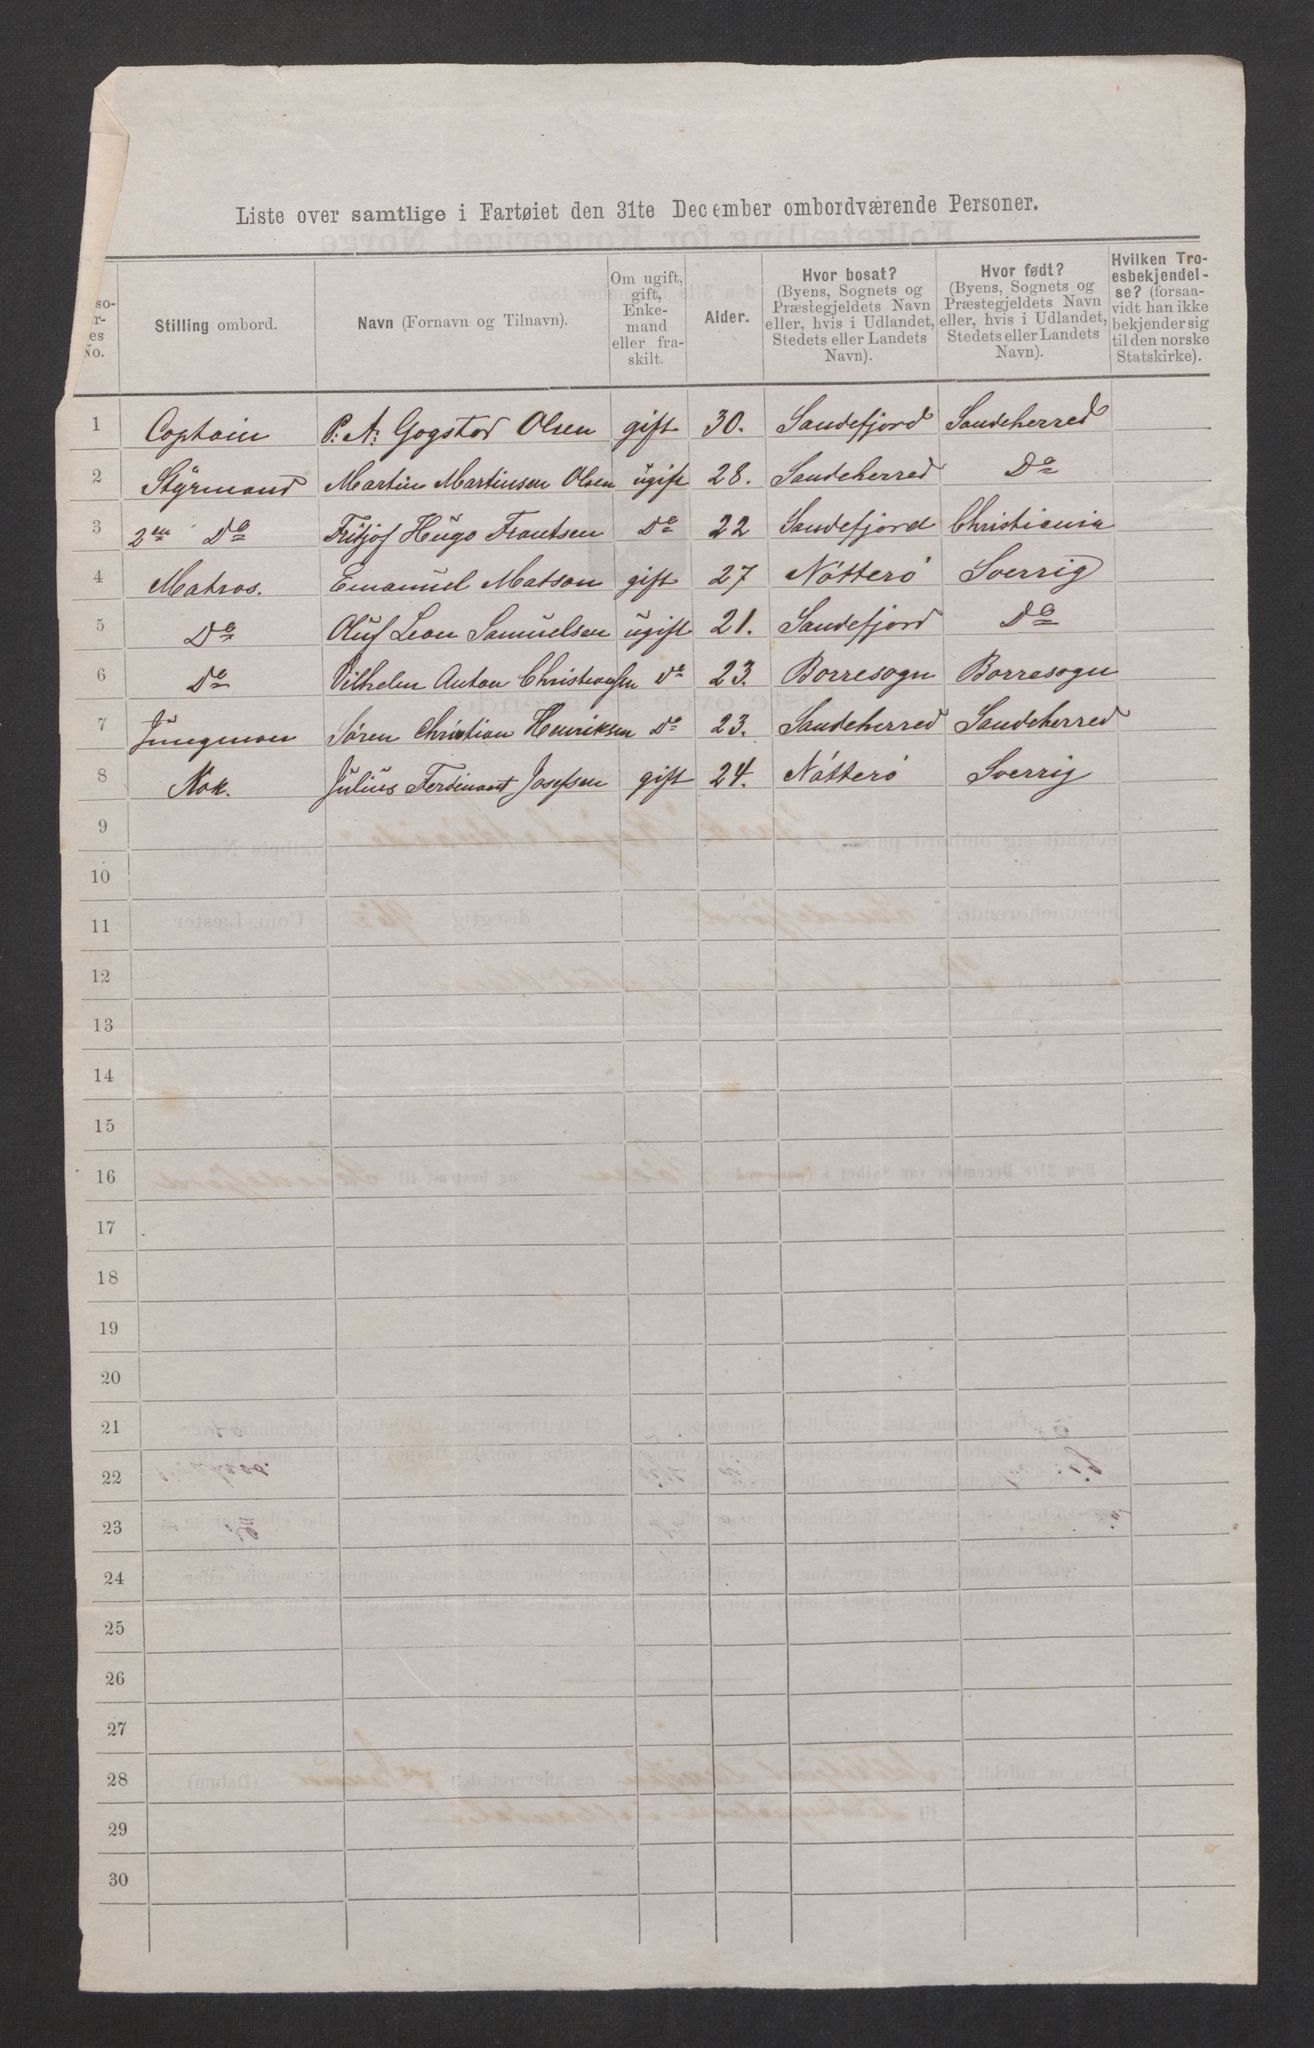 Liste over samtlige i Fartøiet den 31te December ombordværende Personer.
No. | Stilling ombord. | Navn (Fornavn og Tilnavn). | Om ugift, gift, Enke-mand eller fra-skilt. | Alder. | Hvor bosat? (Byens, Sognets og Præstegjeldets Navn eller, hvis i Udlandet, Stedets eller Landets Navn). | Hvor født? (Byens, Sognets og Præstegjeldets Navn eller, hvis i Udlandet, Stedets eller Landets Navn). | Hvilken Tro-esbekjendel-se? (forsaa-vidt han ikke bekjender sig til den norske Statskirke).
1 Captain P. A. Gogstad Olsen gift 30. Sandefjord Sandeherred
2 Styrmand Martin Martinsen Olsen ugift 28. Sandeherred Do
3 2en Do Fritjof Hugo Frantsen Do 22 Sandefjord Christiania
4 Matros. Emanuel Matson gift 27 Nötterö Sverrig
5 Do Oluf Leon Samuelsen ugift 21. Sandefjord Do
6 Do Vilhelm Anton Christiansen Do 23. Borresogn Borresogn
7 Jungman Sören Christian Henriksen Do 23. Sandeherred Sandeherred
8 Kok. Julius Ferdinant Josefsen gift 24. Nötterö Sverrig
9
10
11
12
13
14
15
16
17
18
19
20
21
22
23
24
25
26
27
28
29
30